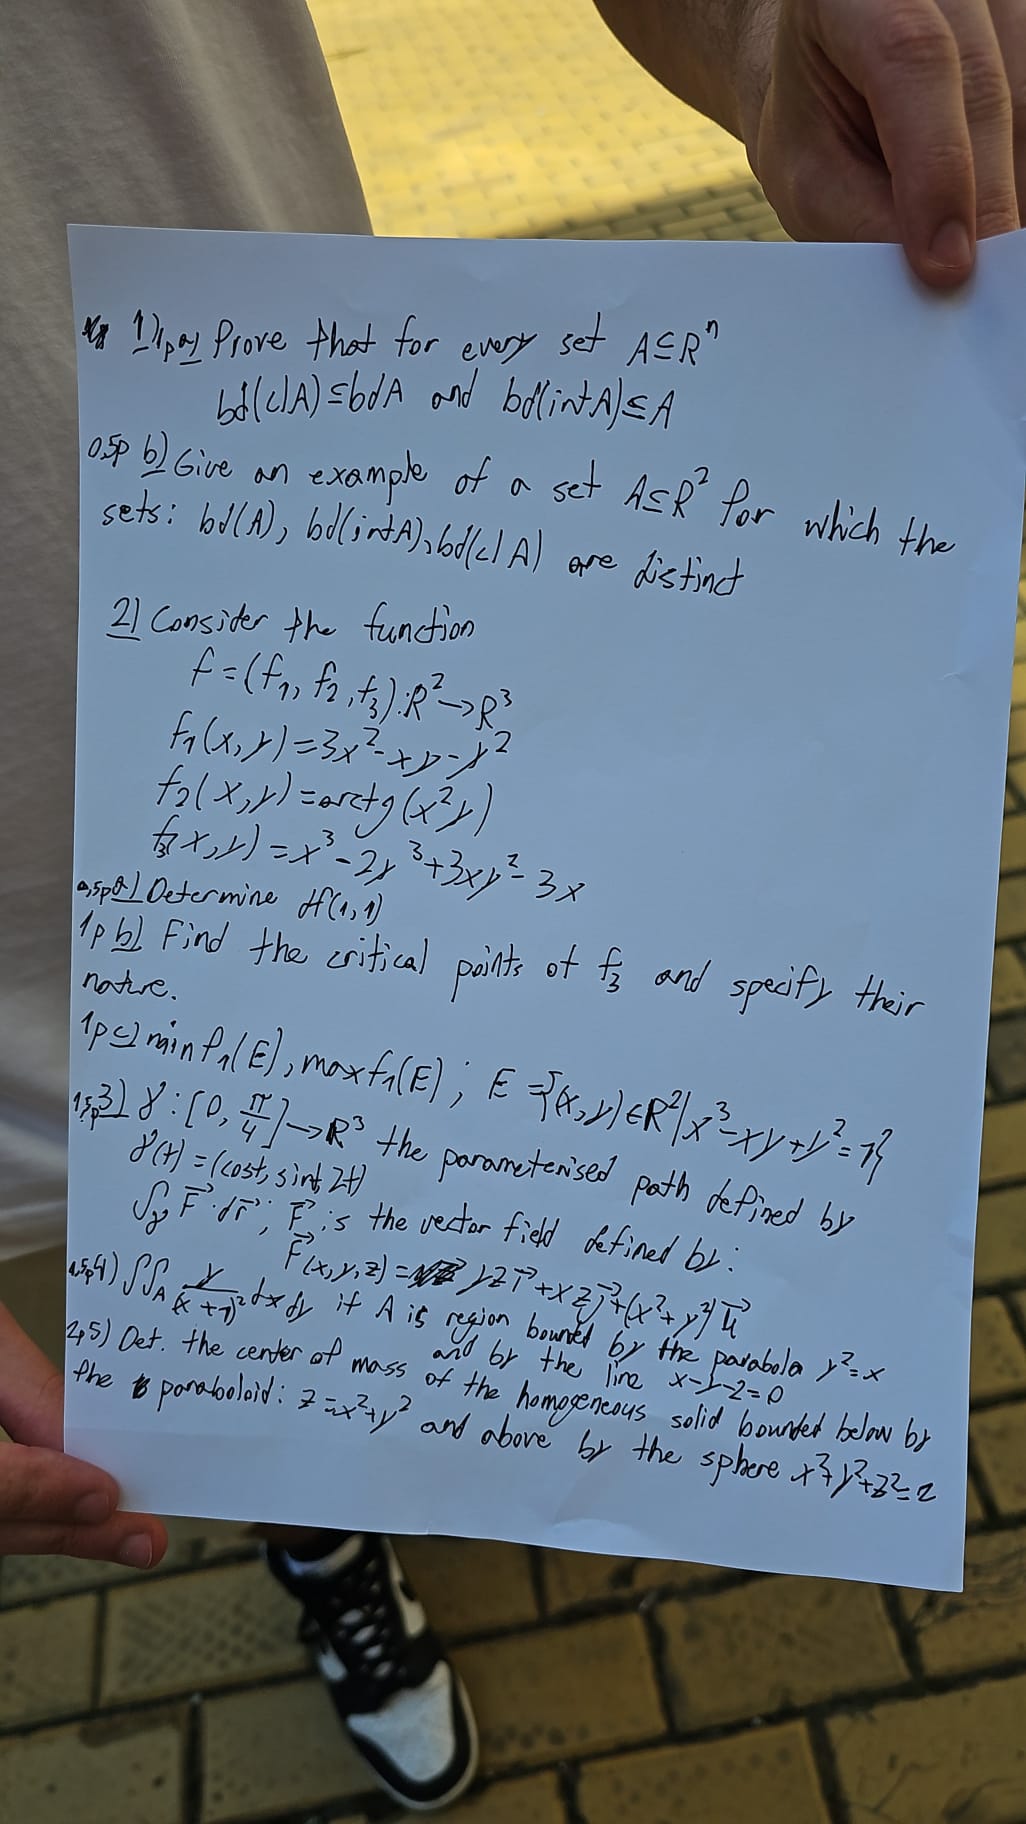 1) 1p a) Prove that for every set A⊆R^n
bd(clA)⊆bdA and bd(intA)⊆A
0,5p b) Give an example of a set A⊆R^2 for which the
sets: bd(A), bd(intA), bd(clA) are distinct
2) Consider the function
f=(f1, f2, f3):R^2→R^3
f1(x,y)=3x^2-xy-y^2
f2(x,y)=arctg(x^2y)
f3(x,y)=x^3-2y^3+3xy^2-3x
0,5p a) Determine df(1,1)
1p b) Find the critical points of f3 and specify their
nature.
1p c) min f1(E), max f1(E); E={(x,y)∈R^2|x^3-xy+y^2=1}
1,5p 3) γ:[0, π/4]→R^3 the parameterised path defined by
γ(t)=(cost, sint, 2t)
∫γ F⃗·dr⃗; F⃗ is the vector field defined by:
F⃗(x,y,z)= yz i⃗+xz j⃗+(x^2+y^2) k⃗
1,5p 4) ∫∫A y/(x+1)^2 dxdy if A is region bounded by the parabola y^2=x
and by the line x-y-2=0
2p 5) Det. the center of mass of the homogeneous solid bounded below by
the paraboloid: z=x^2+y^2 and above by the sphere x^2+y^2+z^2=2